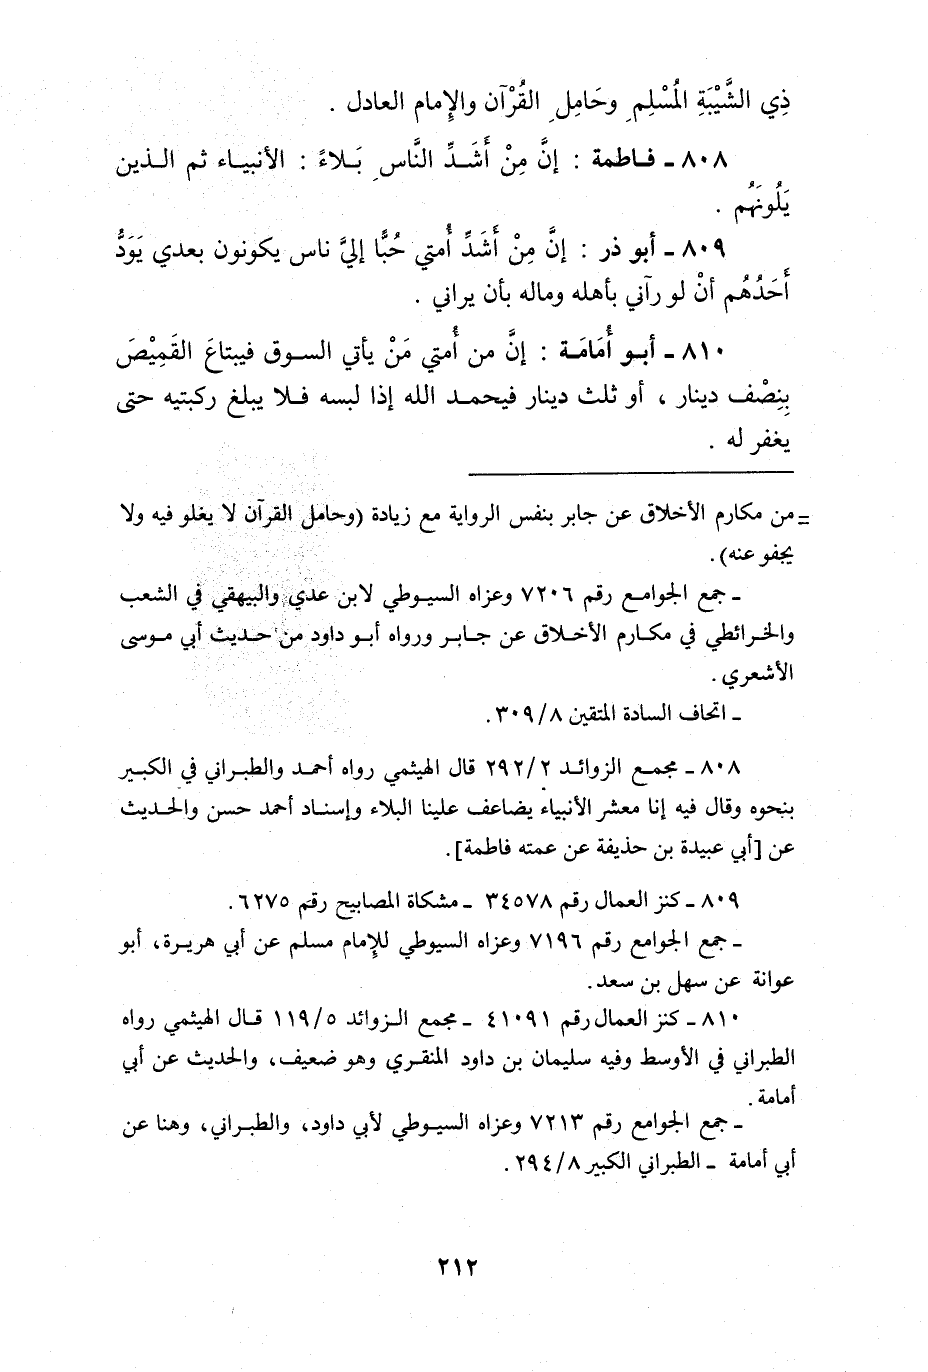 ذِي الشَّيْبَةِ المُسْلِمِ وحَامِلِ القُرْآن والإِمام العادل .
٨٠٨ ـ فـاطمة : إنَّ مِنْ أَشَـدِّ النَّاسِ بَـلاءً : الأنبيـاء ثم الـذين
يَلُونَهُم .
٨٠٩ ـ أبو ذر : إنَّ مِنْ أَشَدِّ أُمتي حُبًّا إليَّ ناس يكونون بعدي يَوَدُّ
أَحَدُهُم أنْ لو رآني بأهله وماله بأن يراني .
٨١٠ ـ أبـو أُمَامَـة : إنَّ من أُمتي مَنْ يأتي السـوق فيبتاعَ القَمِيْصَ
بِنِصْف دينار ، أو ثلث دينار فيحمـد الله إذا لبسه فـلا يبلغ ركبتيه حتى
يغفر له .
=من مكارم الأخلاق عن جابر بنفس الرواية مع زيادة (وحامل القرآن لا يغلو فيه ولا
يجفو عنه).
ـ جمع الجوامـع رقم ٧٢٠٦ وعزاه السيـوطي لابن عدي والبيهقي في الشعب
والخـرائطي في مكـارم الأخـلاق عن جـابـر ورواه أبـو داود من حـديث أبي مـوسى
الأشعري .
ـ اتحاف السادة المتقين ٣٠٩/٨.
٨٠٨ ـ مجمـع الزوائـد ٢٩٢/٢ قال الهيثمي رواه أحمـد والطبـراني في الكبـير
بنحوه وقال فيه إنا معشر الأنبياء يضاعف علينا البلاء وإسنـاد أحمد حسن والحـديث
عن [أبي عبيدة بن حذيفة عن عمته فاطمة].
٨٠٩ ـ كنز العمال رقم ٣٤٥٧٨ ـ مشكاة المصابيح رقم ٦٢٧٥.
ـ جمع الجوامع رقم ٧١٩٦ وعزاه السيوطي للإمام مسلم عن أبي هريرة، أبو
عوانة عن سهل بن سعد.
٨١٠ ـ كنز العمال رقم ٤١٠٩١ ـ مجمع الـزوائد ١١٩/٥ قـال الهيثمي رواه
الطبراني في الأوسط وفيه سليمان بن داود المنقري وهو ضعيف، والحديث عن أبي
أمامة .
ـ جمع الجوامع رقم ٧٢١٣ وعزاه السيـوطي لأبي داود، والطبـراني، وهنا عن
أبي أمامة ـ الطبراني الكبير ٢٩٤/٨.
٢١٢